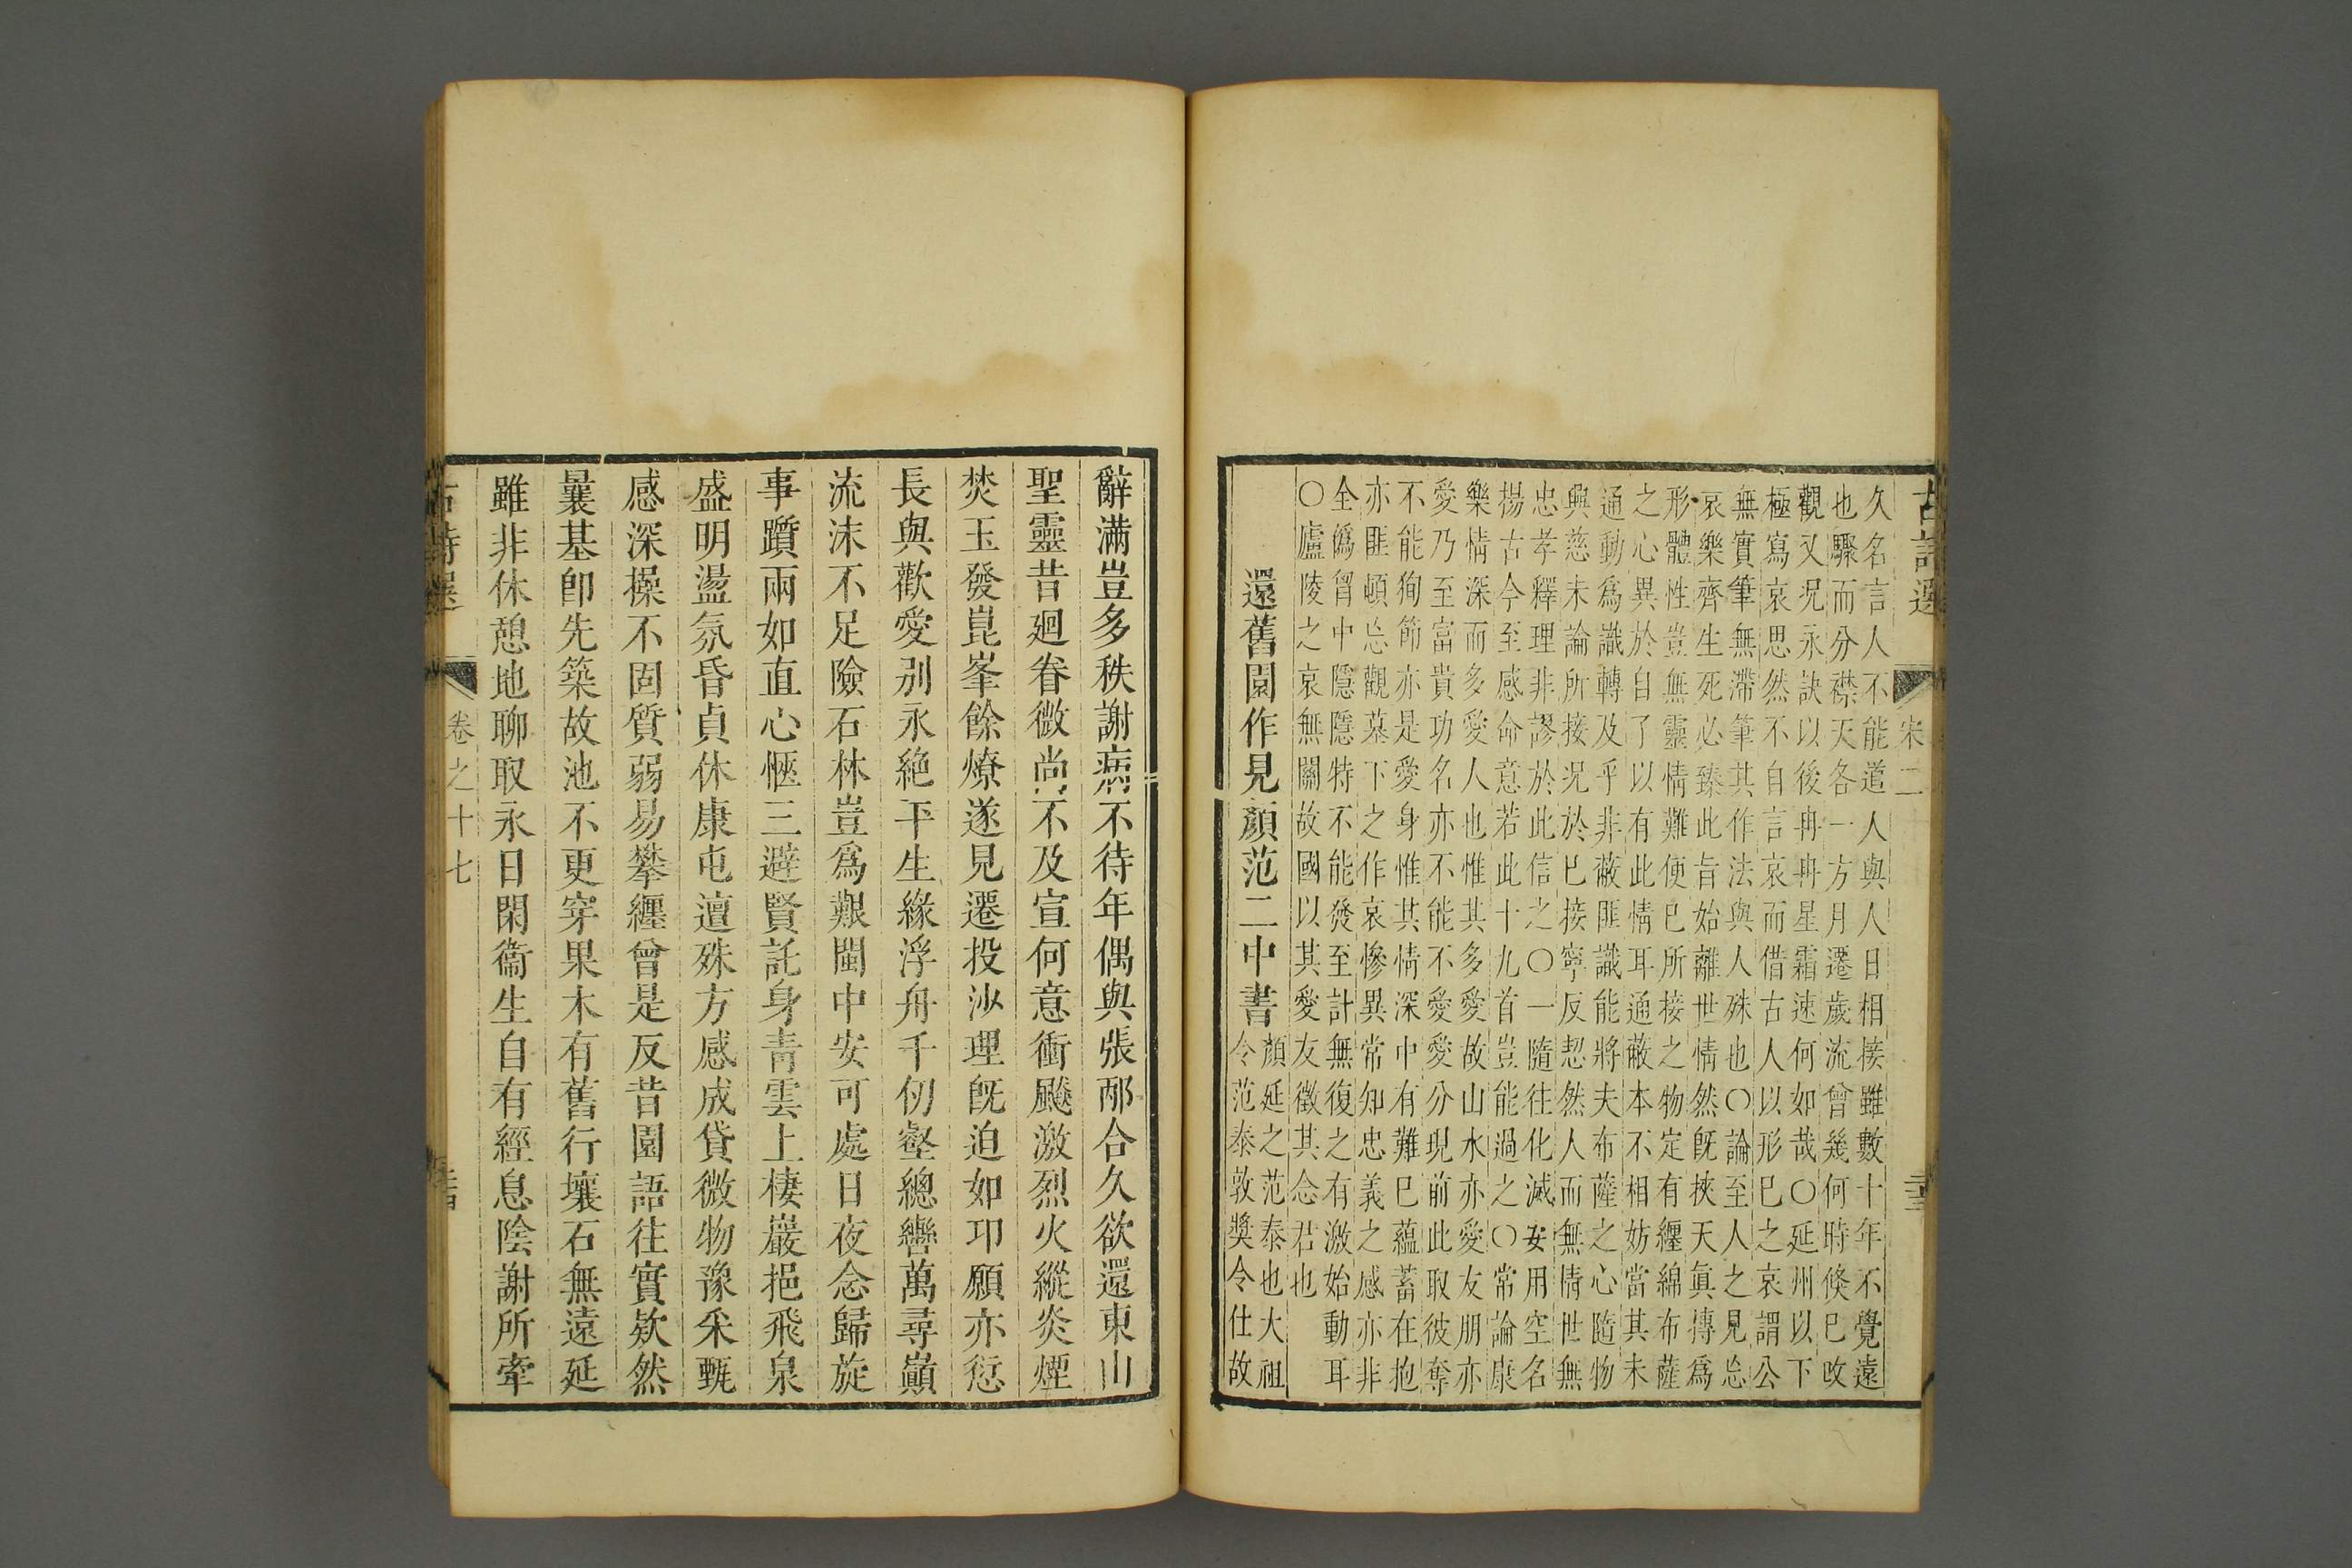 古詩選
宋二
久名言人不能道人與人日相接雖數十年不覺遠
也驟而分襟天各一方月遷歲流曾幾何時倏已改
觀又況永訣以後冉冉星霜速何如哉○延州以下
極寫哀思然不自言哀而借古人以形已之哀謂公
無實筆無滯筆其作法與人殊也○論至人之見忘
哀樂齊生死必臻此旨始離世情然既挾天眞摶爲
形體性豈無靈情難便已所接之物定有纏綿布薩
之心異於自了以有此情耳通蔽本不相妨當其未
通動爲識轉及乎非蔽匪識能將夫布薩之心隨物
與慈未論所接況於已接寧反恝然人而無情世無
忠孝釋理非謬於此信之○一隨往化滅安用空名
揚古今至感命意若此十九首豈能過之○常論康
樂情深而多愛人也惟其多愛故山水亦愛友朋亦
愛乃至富貴功名亦不能不愛愛分現前此取彼奪
不能狥節亦是愛身惟其情深中有難已蘊蓄在抱
亦匪頓忘觀墓下之作哀慘異常知忠義之感亦非
全僞胷中隱隱特不能發至計無復之有激始動耳
○廬陵之哀無關故國以其愛友徵其念君也
還舊園作見顏范二中書
顏延之范泰也大祖
令范泰敦獎令仕故
辭滿豈多秩謝病不待年偶與張邴合久欲還東山
聖靈昔廻眷微尚不及宣何意衝飈激烈火縱炎煙
焚玉發崑峯餘燎遂見遷投沙理旣迫如卭願亦愆
長與歡愛别永絶平生緣浮舟千仞壑總轡萬尋巔
流沫不足險石林豈爲艱閩中安可處日夜念歸旋
事躓兩如直心愜三避賢託身靑雲上棲巖挹飛泉
盛明盪氛昏貞休康屯邅殊方感成貸微物豫采甄
感深操不固質弱易攀纏曾是反昔園語往實欵然
曩基卽先築故池不更穿果木有舊行壤石無遠延
雖非休憩地聊取永日閑衞生自有經息陰謝所牽
古詩選
卷之十七